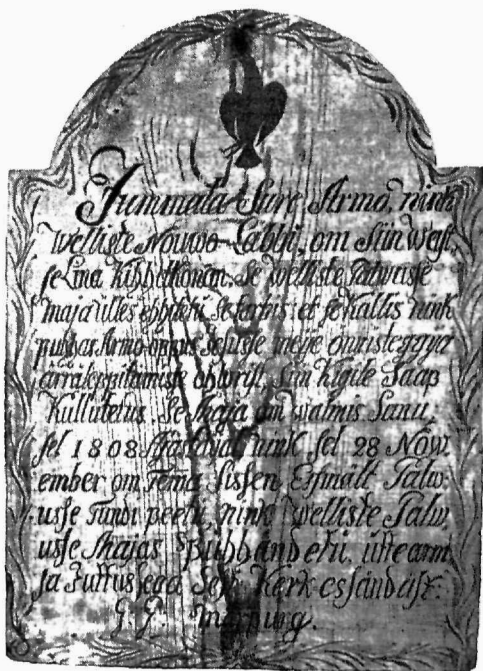 Jummala Sure Armo, nink
welliste Nouwo Labbi, om Siin West,
se Lina Kihhelkonan, Se welliste Palwusse
maja ülles ehhitetü. Se
puhhas Armo-oppus Jesusse meije onnistegija
ärräleppitamisse ohwrist, siin kigile Saap
Kullutetus. Se Maja om walmis Sanu,
sel 1808 Ajastajal nink sel 28 Now,
ember om Tema sissen Essmält Palw,
usse Tundi peetü, nink welliste Palw,
usse Majas Pühhandetü, ütte arm,
sa Juttussega Sest Kerkessandast:
G. G. Marpurg.